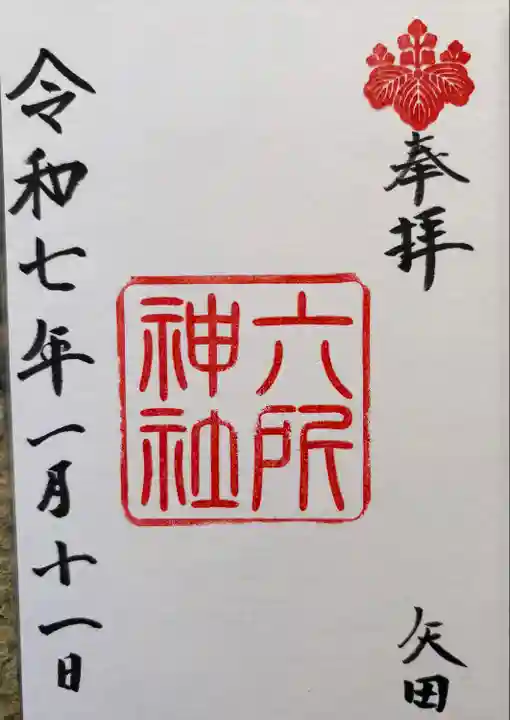 奉拝
矢田
六所
神社
令和七年一月十一日